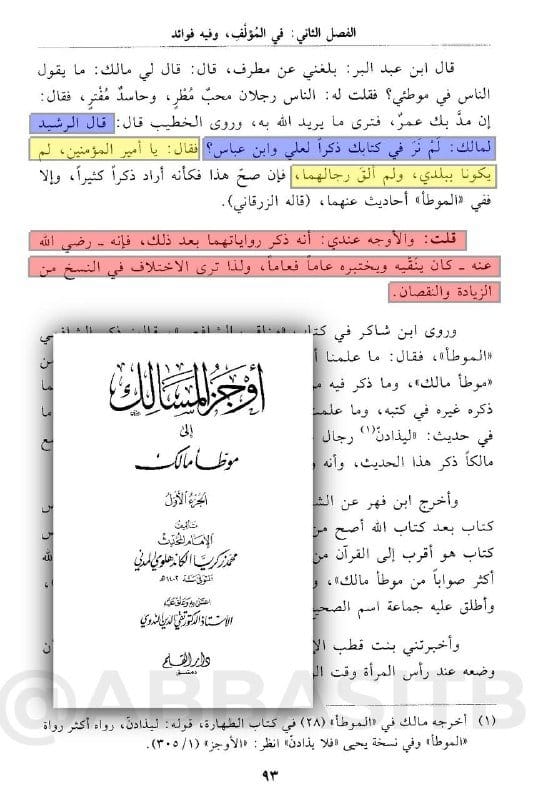 الفصل الثاني: في المُؤَلِّفِ، وفيه فوائد
قال ابن عبد البر: بلغني عن مطرف، قال: قال لي مالك: ما يقول
الناس في موطئي؟ فقلت له: الناس رجلان محبٌ مُطْرٍ، وحاسدٌ مُفْترٍ، فقال:
إن مدَّ بك عمرٌ، فترى ما يريد الله به، وروى الخطيب قال: قال الرشيد
لمالك: لَمْ نَرَ في كتابك ذكراً لعلي وابن عباس؟ فقال: يا أمير المؤمنين، لم
يكونا ببلدي، ولم ألقَ رجالهما، فإن صحّ هذا فكأنه أراد ذكراً كثيراً، وإلا
ففي «الموطأ» أحاديث عنهما، (قاله الزرقاني).
قلت: والأوجه عندي: أنه ذكر رواياتهما بعد ذلك، فإنه ـ رضي الله
عنه ـ كان ينَقِّيه ويختبره عاماً فعاماً، ولذا ترى الاختلاف في النسخ من
الزيادة والنقصان.
وروى ابن شاكر في كتاب
«الموطأ»، فقال: ما علمنا
«موطأ مالك»، وما ذكر فيه
ذكره غيره في كتبه، وما
في حديث: «ليذادنّ(١) رجال
مالكاً ذكر هذا الحديث، وأنه
وأخرج ابن فهر عن
كتاب بعد كتاب الله أصح من
كتاب هو أقرب إلى القرآن من
أكثر صواباً من موطأ مالك»،
وأطلق عليه جماعة اسم
وأخبرتني بنت قطب
وضعه عند رأس المرأة وقت
أوجز المسالك
إلى
موطأ مالك
الجزء الأول
تأليف
الإمام المحدث
محمد زكريا الكاندهلوي المدني
المتوفى سنة ١٤٠٢هـ
اعتنى به وعلق عليه
الأستاذ الدكتور تقي الدين الندوي
دار القلم
دمشق
@ABBASITB
(١) أخرجه مالك في «الموطأ» (٢٨) في كتاب الطهارة، قوله: ليذادنّ، رواه أكثر رواة
«الموطأ» وفي نسخة يحيى «فلا يذادنّ» انظر: «الأوجز» (٣٠٥/١).
٩٣